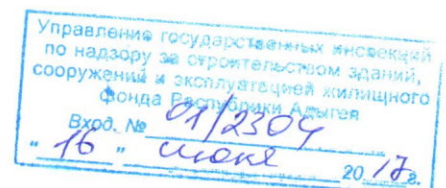 Управление государственных инспекций
по надзору за строительством зданий,
сооружений и эксплуатацией жилищного
фонда Республики Адыгея
Вход. № 01/2304
" 16 " июня 2017г.